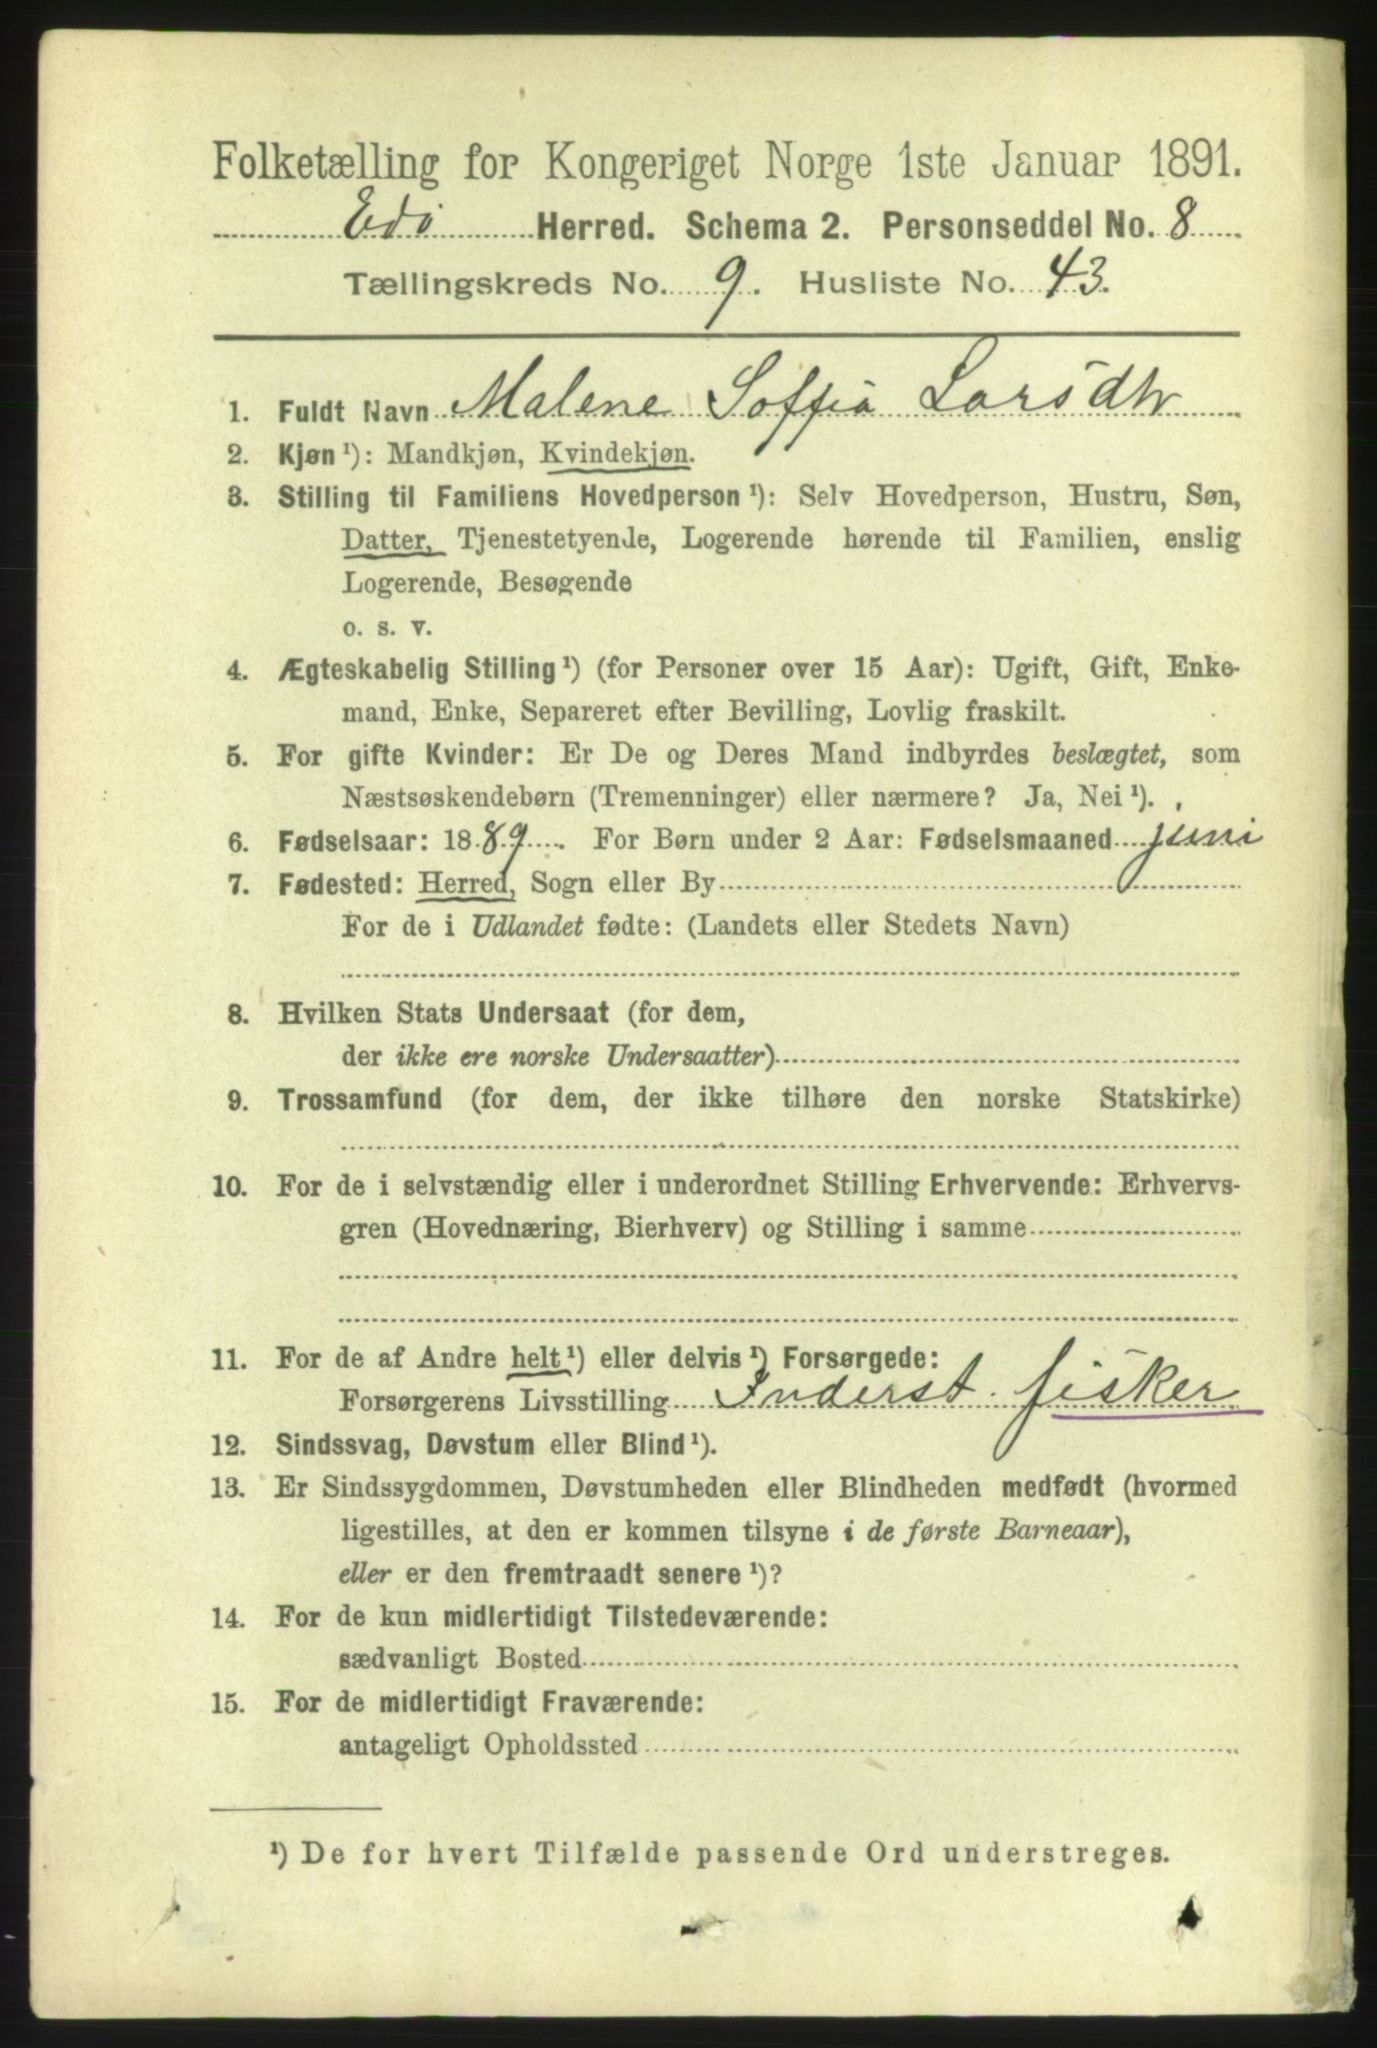 Folketælling for Kongeriget Norge 1ste Januar 1891.
Edø Herred. Schema 2. Personseddel No. 8
Tællingskreds No. 9. Husliste No. 43.
1. Fuldt Navn Malene Soffia Larsdtr
2. Kjøn ¹): Mandkjøn, Kvindekjøn.
3. Stilling til Familiens Hovedperson ¹): Selv Hovedperson, Hustru, Søn,
Datter, Tjenestetyende, Logerende hørende til Familien, enslig
Logerende, Besøgende
o. s. v.
4. Ægteskabelig Stilling ¹) (for Personer over 15 Aar): Ugift, Gift, Enke-
mand, Enke, Separeret efter Bevilling, Lovlig fraskilt.
5. For gifte Kvinder: Er De og Deres Mand indbyrdes beslægtet, som
Næstsøskendebørn (Tremenninger) eller nærmere? Ja, Nei ¹).
6. Fødselsaar: 1889. For Børn under 2 Aar: Fødselsmaaned juni
7. Fødested: Herred, Sogn eller By
For de i Udlandet fødte: (Landets eller Stedets Navn)
8. Hvilken Stats Undersaat (for dem,
der ikke ere norske Undersaatter)
9. Trossamfund (for dem, der ikke tilhøre den norske Statskirke)
10. For de i selvstændig eller i underordnet Stilling Erhvervende: Erhvervs-
gren (Hovednæring, Bierhverv) og Stilling i samme
11. For de af Andre helt ¹) eller delvis ¹) Forsørgede:
Forsørgerens Livsstilling Inderst. fisker
12. Sindssvag, Døvstum eller Blind ¹).
13. Er Sindssygdommen, Døvstumheden eller Blindheden medfødt (hvormed
ligestilles, at den er kommen tilsyne i de første Barneaar),
eller er den fremtraadt senere ¹)?
14. For de kun midlertidigt Tilstedeværende:
sædvanligt Bosted
15. For de midlertidigt Fraværende:
antageligt Opholdssted
¹) De for hvert Tilfælde passende Ord understreges.